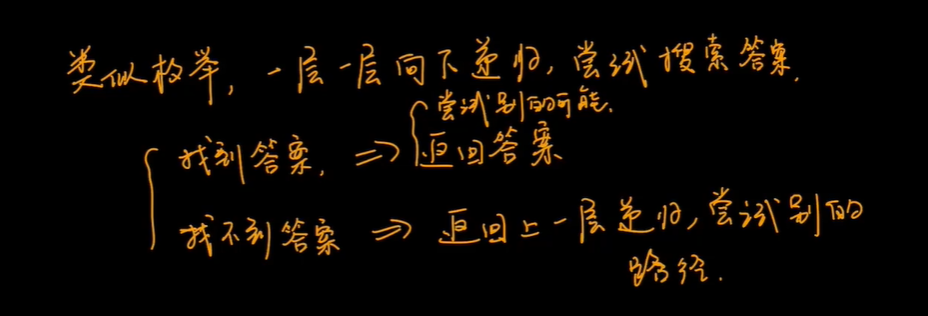 类似枚举, 一层一层向下递归, 尝试搜索答案.
尝试别的可能.
找到答案, ⇒ 返回答案
找不到答案 ⇒ 返回上一层递归, 尝试别的
路径.